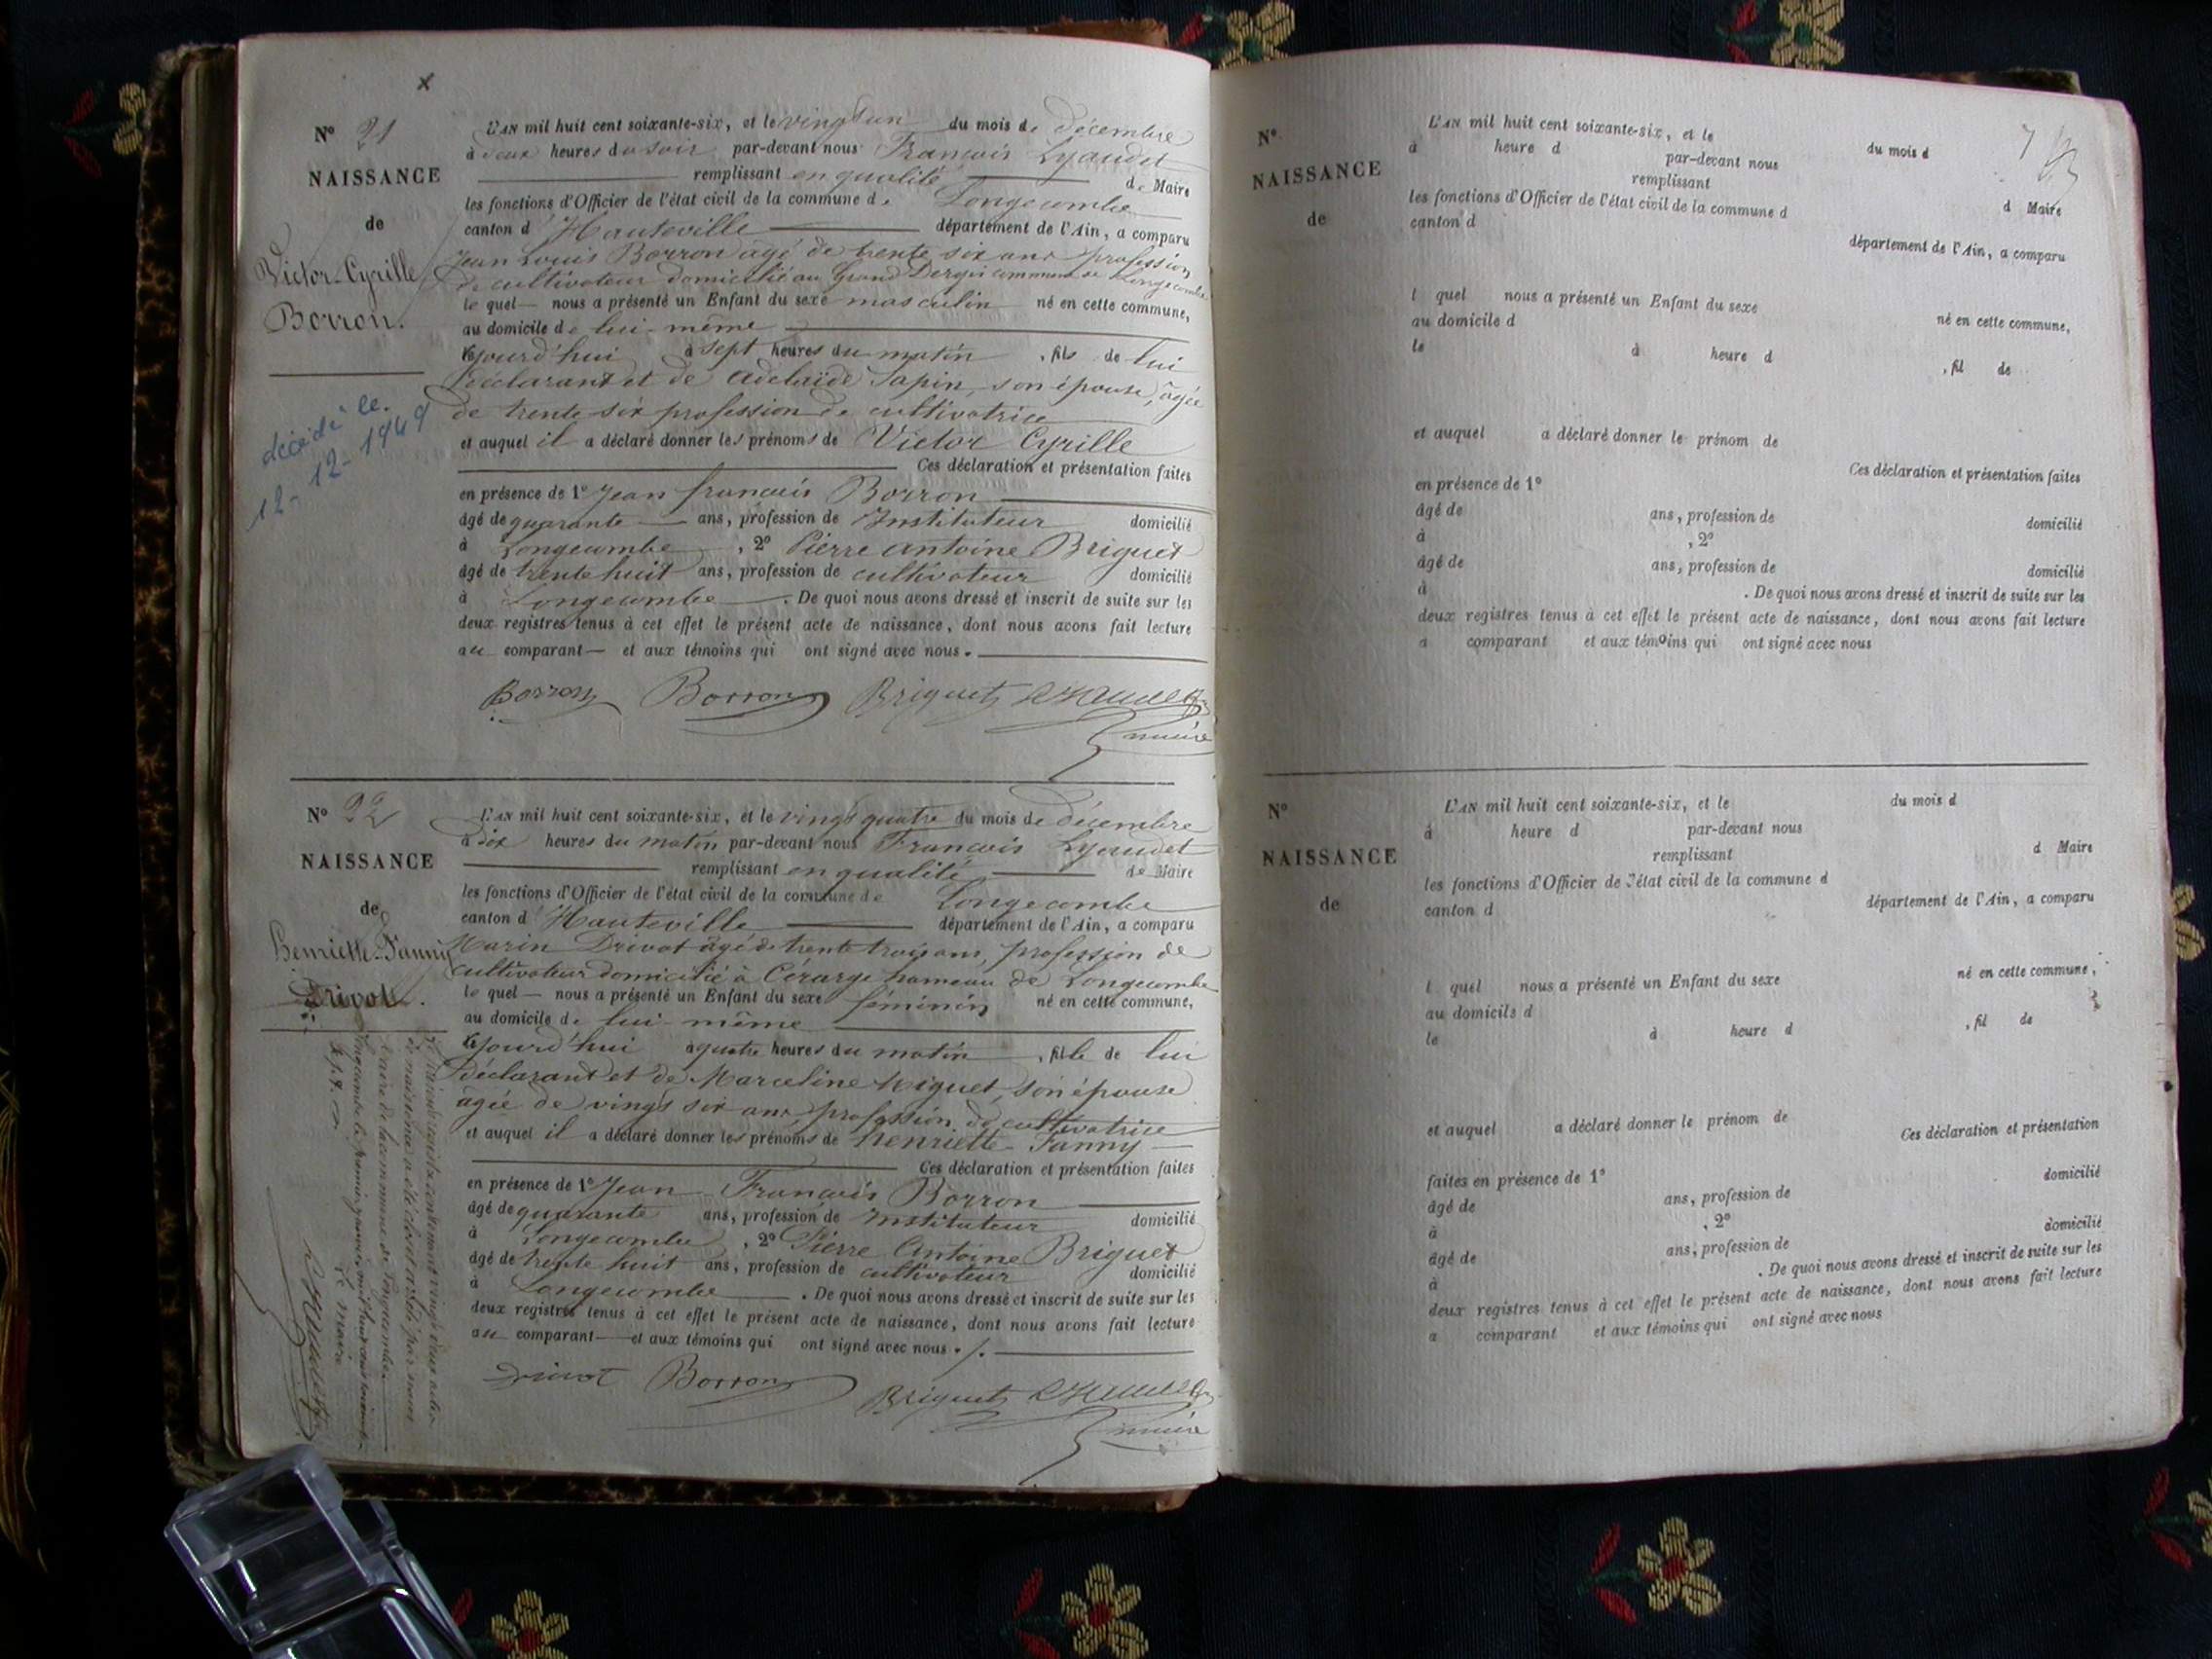 x
N° 21
NAISSANCE
de
Victor-Cyrille
Borron.
décédé le.
12-12-1949
L'AN mil huit cent soixante-six, et le vingt un du mois de décembre
à deux heures du soir par-devant nous François Lyaudet
remplissant en qualité de Maire
les fonctions d'Officier de l'état civil de la commune de Longecombe
canton d'Hauteville département de l'Ain, a comparu
Jean Louis Borron âgé de trente six ans profession
de cultivateur domicilié au Grand Dergis commune de Longecombe
le quel nous a présenté un Enfant du sexe masculin né en cette commune,
au domicile de lui-même
jourd'hui à sept heures du matin, fils de lui
déclarant et de Adelaïde Sapin, son épouse, âgée
de trente six profession de cultivatrice
et auquel il a déclaré donner les prénoms de Victor Cyrille
Ces déclaration et présentation faites
en présence de 1° Jean françois Borron
âgé de quarante ans, profession de Instituteur domicilié
à Longecombe, 2° Pierre Antoine Briguet
âgé de trente huit ans, profession de cultivateur domicilié
à Longecombe. De quoi nous avons dressé et inscrit de suite sur les
deux registres tenus à cet effet le présent acte de naissance, dont nous avons fait lecture
au comparant et aux témoins qui ont signé avec nous.
Borron Borron Briguet Lyaudet
maire
N° 22
NAISSANCE
de
Henriette-Fanny
Drivot.
L'AN mil huit cent soixante-six, et le vingt quatre du mois de décembre
à dix heures du matin par-devant nous François Lyaudet
remplissant en qualité de Maire
les fonctions d'Officier de l'état civil de la commune de Longecombe
canton d'Hauteville département de l'Ain, a comparu
Marin Drivot âgé de trente trois ans, profession de
cultivateur domicilié à Cérarge hameau de Longecombe
le quel nous a présenté un Enfant du sexe féminin né en cette commune,
au domicile de lui-même
jourd'hui à quatre heures du matin, fille de lui
déclarant et de Marceline Miguet, son épouse
âgée de vingt six ans, profession de cultivatrice
et auquel il a déclaré donner les prénoms de Henriette Fanny
Ces déclaration et présentation faites
en présence de 1° Jean François Borron
âgé de quarante ans, profession de Instituteur domicilié
à Longecombe, 2° Pierre Antoine Briguet
âgé de trente huit ans, profession de cultivateur domicilié
à Longecombe. De quoi nous avons dressé et inscrit de suite sur les
deux registres tenus à cet effet le présent acte de naissance, dont nous avons fait lecture
au comparant et aux témoins qui ont signé avec nous ./.
Drivot Borron Briguet Lyaudet
maire
Le présent registre contenant vingt deux actes
de naissance a été clos et arrêté par nous
Maire de la commune de Longecombe
Longecombe le premier janvier mil huit cent soixante
sept.
Le maire
Lyaudet
7
N°
NAISSANCE
de
L'AN mil huit cent soixante-six, et le du mois d
à heure d par-devant nous
remplissant d Maire
les fonctions d'Officier de l'état civil de la commune d
canton d département de l'Ain, a comparu
l quel nous a présenté un Enfant du sexe né en cette commune,
au domicile d
le à heure d , fil de
et auquel a déclaré donner le prénom de
Ces déclaration et présentation faites
en présence de 1°
âgé de ans, profession de domicilié
à , 2°
âgé de ans, profession de domicilié
à . De quoi nous avons dressé et inscrit de suite sur les
deux registres tenus à cet effet le présent acte de naissance, dont nous avons fait lecture
a comparant et aux témoins qui ont signé avec nous
N°
NAISSANCE
de
L'AN mil huit cent soixante-six, et le du mois d
à heure d par-devant nous
remplissant d Maire
les fonctions d'Officier de l'état civil de la commune d
canton d département de l'Ain, a comparu
l quel nous a présenté un Enfant du sexe né en cette commune,
au domicils d
le à heure d , fil de
et auquel a déclaré donner le prénom de
Ces déclaration et présentation
faites en présence de 1° domicilié
âgé de ans, profession de
à , 2° domicilié
âgé de ans, profession de
à . De quoi nous avons dressé et inscrit de suite sur les
deux registres tenus à cet effet le présent acte de naissance, dont nous avons fait lecture
a comparant et aux témoins qui ont signé avec nous